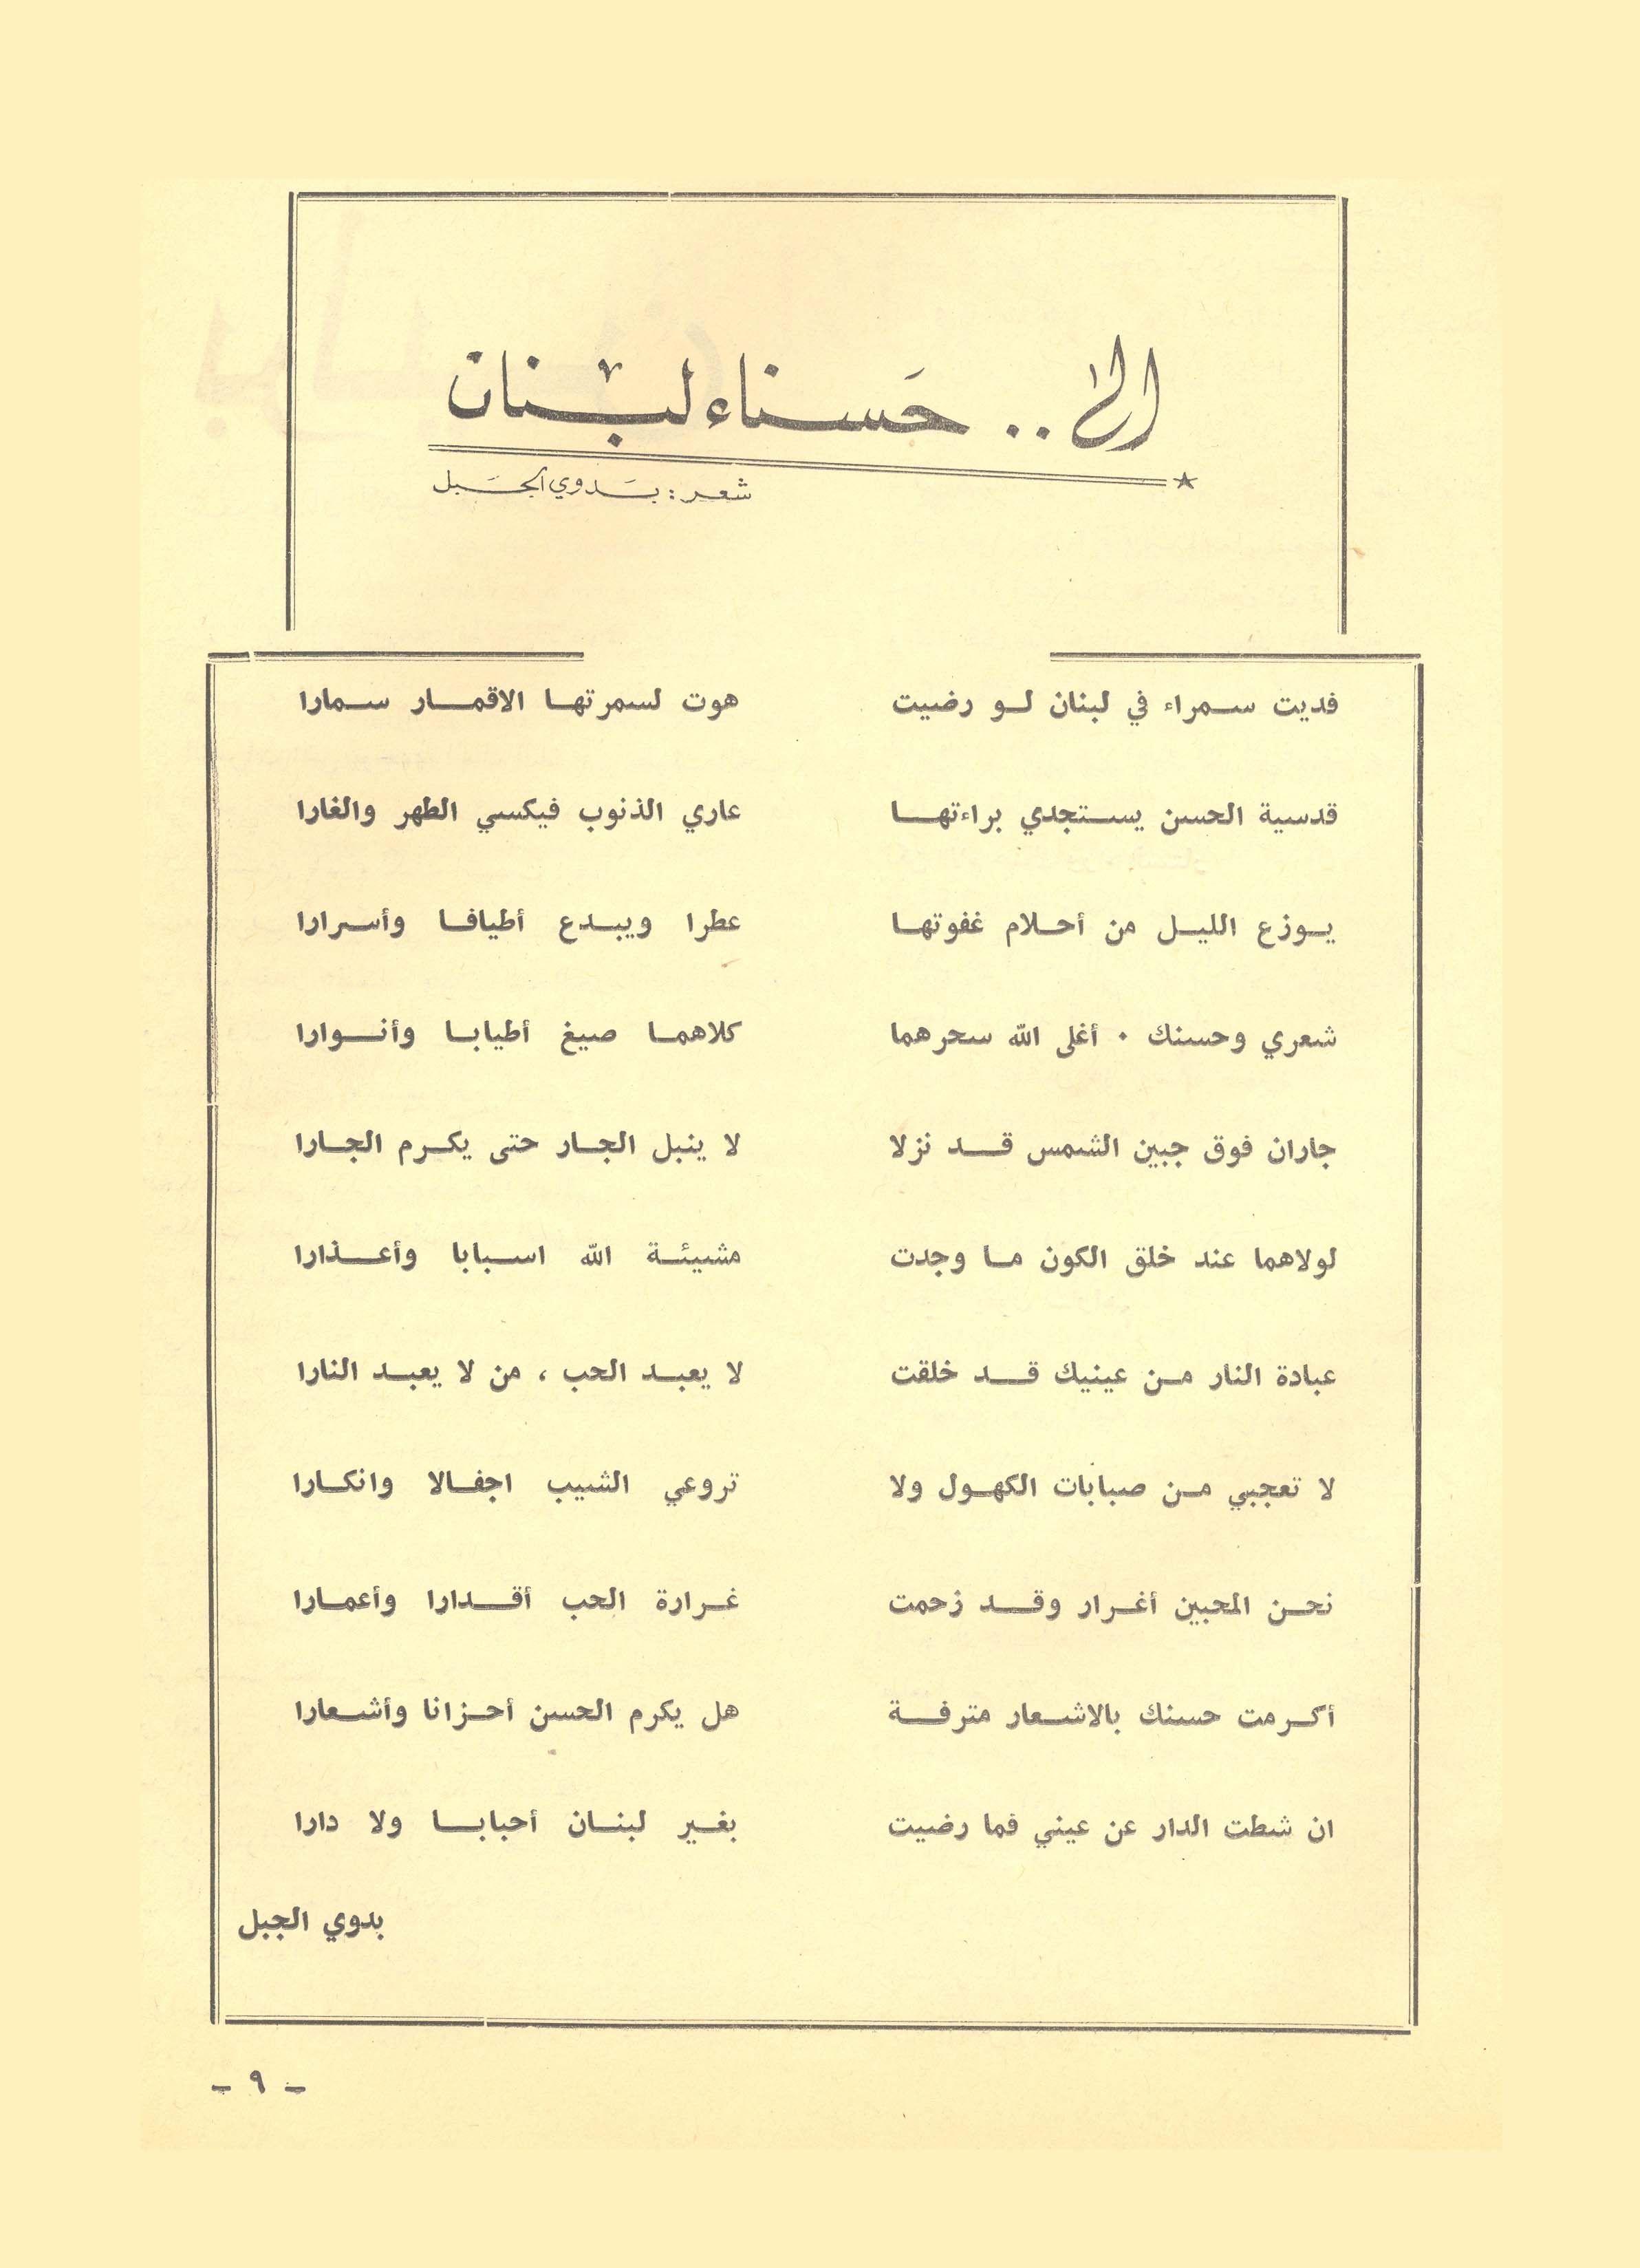 الى .. حَسناء لبْنان
شعر : بَدوي الجَبل
فديت سمراء في لبنان لو رضيت هوت لسمرتها الاقمار سمارا
قدسية الحسن يستجدي براءتها عاري الذنوب فيكسي الطهر والغارا
يوزع الليل من أحلام غفوتها عطرا ويبدع أطيافا وأسرارا
شعري وحسنك . أغلى الله سحرهما كلاهما صيغ أطيابا وأنوارا
جاران فوق جبين الشمس قد نزلا لا ينبل الجار حتى يكرم الجارا
لولاهما عند خلق الكون ما وجدت مشيئة الله اسبابا وأعذارا
عبادة النار من عينيك قد خلقت لا يعبد الحب ، من لا يعبد النارا
لا تعجبي من صبابات الكهول ولا تروعي الشيب اجفالا وانكارا
نحن المحبين أغرار وقد زحمت غرارة الحب أقدارا وأعمارا
أكرمت حسنك بالاشعار مترفة هل يكرم الحسن أحزانا وأشعارا
ان شطت الدار عن عيني فما رضيت بغير لبنان أحبابا ولا دارا
بدوي الجبل
- ٩ -